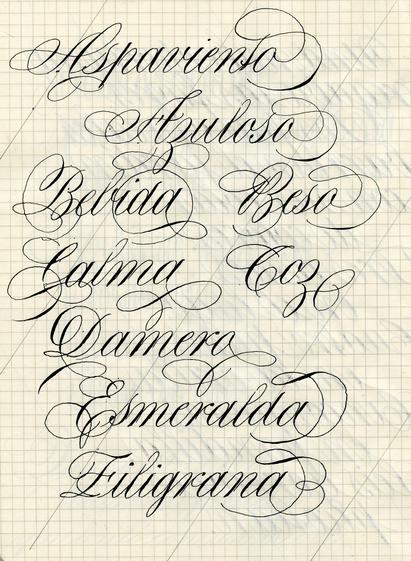 Aspaviento
Azuloso
Bebida Beso
Calma Coz
Damero
Esmeralda
Filigrana